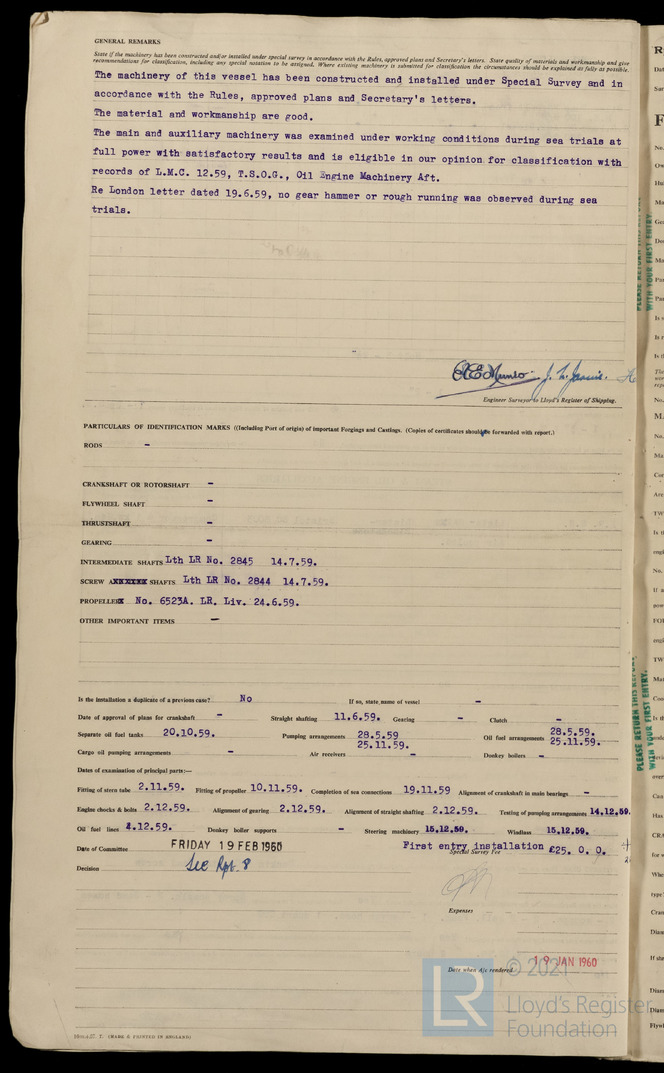 GENERAL REMARKS
State if the machinery has been constructed and/or installed under special survey in accordance with the Rules, approved plans and Secretary's letters. State quality of materials and workmanship and give
recommendations for classification, including any special notation to be assigned. Where existing machinery is submitted for classification the circumstances should be explained as fully as possible.
The machinery of this vessel has been constructed and installed under Special Survey and in
accordance with the Rules, approved plans and Secretary's letters.
The material and workmanship are good.
The main and auxiliary machinery was examined under working conditions during sea trials at
full power with satisfactory results and is eligible in our opinion for classification with
records of L.M.C. 12.59, T.S.O.G., Oil Engine Machinery Aft.
Re London letter dated 19.6.59, no gear hammer or rough running was observed during sea
trials.
Engineer Surveyor to Lloyd's Register of Shipping.
PARTICULARS OF IDENTIFICATION MARKS ((Including Port of origin) of important Forgings and Castings. (Copies of certificates should be forwarded with report.)
RODS -
CRANKSHAFT OR ROTORSHAFT -
FLYWHEEL SHAFT -
THRUSTSHAFT -
GEARING -
INTERMEDIATE SHAFTS Lth LR No. 2845 14.7.59.
SCREW SHAFTS Lth LR No. 2844 14.7.59.
PROPELLER No. 6523A. LR. Liv. 24.6.59.
OTHER IMPORTANT ITEMS -
Is the installation a duplicate of a previous case? No If so, state name of vessel -
Date of approval of plans for crankshaft - Straight shafting 11.6.59. Gearing - Clutch -
Separate oil fuel tanks 20.10.59. Pumping arrangements 28.5.59 25.11.59. Oil fuel arrangements 28.5.59. 25.11.59.
Cargo oil pumping arrangements - Air receivers - Donkey boilers -
Dates of examination of principal parts:—
Fitting of stern tube 2.11.59. Fitting of propeller 10.11.59. Completion of sea connections 19.11.59 Alignment of crankshaft in main bearings -
Engine chocks & bolts 2.12.59. Alignment of gearing 2.12.59. Alignment of straight shafting 2.12.59. Testing of pumping arrangements 14.12.59.
Oil fuel lines 4.12.59. Donkey boiler supports - Steering machinery 15.12.59. Windlass 15.12.59.
Date of Committee FRIDAY 19 FEB 1960 First entry installation £25. 0. 0.
Special Survey Fee
Decision See Rpt. 8
Expenses
Date when A/c rendered 19 JAN 1960
PLEASE RETURN THIS REPORT
WITH YOUR FIRST ENTRY.
© 2021
LR
Lloyd's Register
Foundation
(MADE & PRINTED IN ENGLAND)